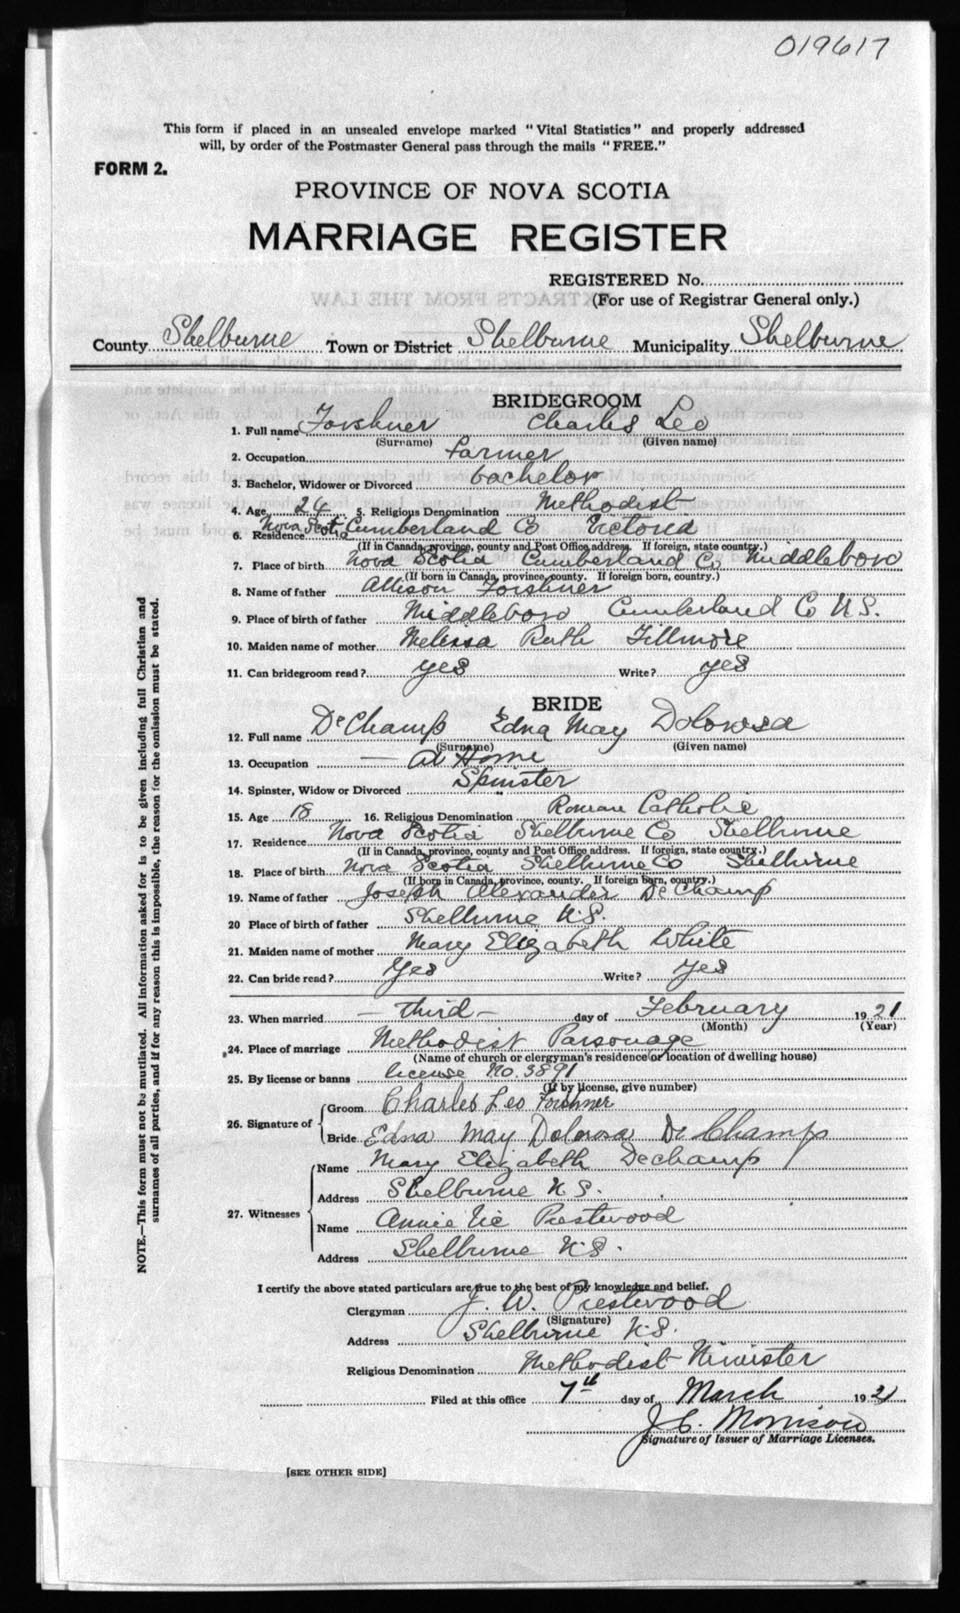 019617
This form if placed in an unsealed envelope marked "Vital Statistics" and properly addressed
will, by order of the Postmaster General pass through the mails "FREE."
FORM 2.
PROVINCE OF NOVA SCOTIA
MARRIAGE REGISTER
REGISTERED No.
(For use of Registrar General only.)
County Shelburne Town or District Shelburne Municipality Shelburne
BRIDEGROOM
1. Full name Forshner Charles Leo
(Surname) (Given name)
2. Occupation Farmer
3. Bachelor, Widower or Divorced bachelor
4. Age 24 5. Religious Denomination Methodist
6. Residence Nova Scotia Cumberland Co Victoria
(If in Canada, province, county and Post Office address. If foreign, state country.)
7. Place of birth Nova Scotia Cumberland Co Middleboro
(If born in Canada, province, county. If foreign born, country.)
8. Name of father Allison Forshner
9. Place of birth of father Middleboro Cumberland Co N.S.
10. Maiden name of mother Melissa Ruth Fillmore
11. Can bridegroom read? yes Write? yes
BRIDE
12. Full name DeChamp Edna May Dolorosa
(Surname) (Given name)
13. Occupation — At Home
14. Spinster, Widow or Divorced Spinster
15. Age 18 16. Religious Denomination Roman Catholic
17. Residence Nova Scotia Shelburne Co Shelburne
(If in Canada, province, county and Post Office address. If foreign, state country.)
18. Place of birth Nova Scotia Shelburne Co Shelburne
(If born in Canada, province, county. If foreign born, country.)
19. Name of father Joseph Alexander DeChamp
20 Place of birth of father Shelburne N.S.
21. Maiden name of mother Mary Elizabeth White
22. Can bride read? Yes Write? yes
23. When married — third — day of February 1921
(Month) (Year)
24. Place of marriage Methodist Parsonage
(Name of church or clergyman's residence or location of dwelling house)
25. By license or banns license No. 3891
(If by license, give number)
26. Signature of Groom Charles Leo Forshner
Bride Edna May Dolorosa De Champ
27. Witnesses Name Mary Elizabeth Dechamp
Address Shelburne N.S.
Name Annie Prestwood
Address Shelburne N.S.
I certify the above stated particulars are true to the best of my knowledge and belief.
Clergyman J. W. Prestwood
(Signature)
Address Shelburne N.S.
Religious Denomination Methodist Minister
Filed at this office 7th day of March 1921
J. C. Morrison
Signature of Issuer of Marriage Licenses.
[SEE OTHER SIDE]
NOTE.—This form must not be mutilated. All information asked for is to be given including full Christian and
surnames of all parties, and if for any reason this is impossible, the reason for the omission must be stated.